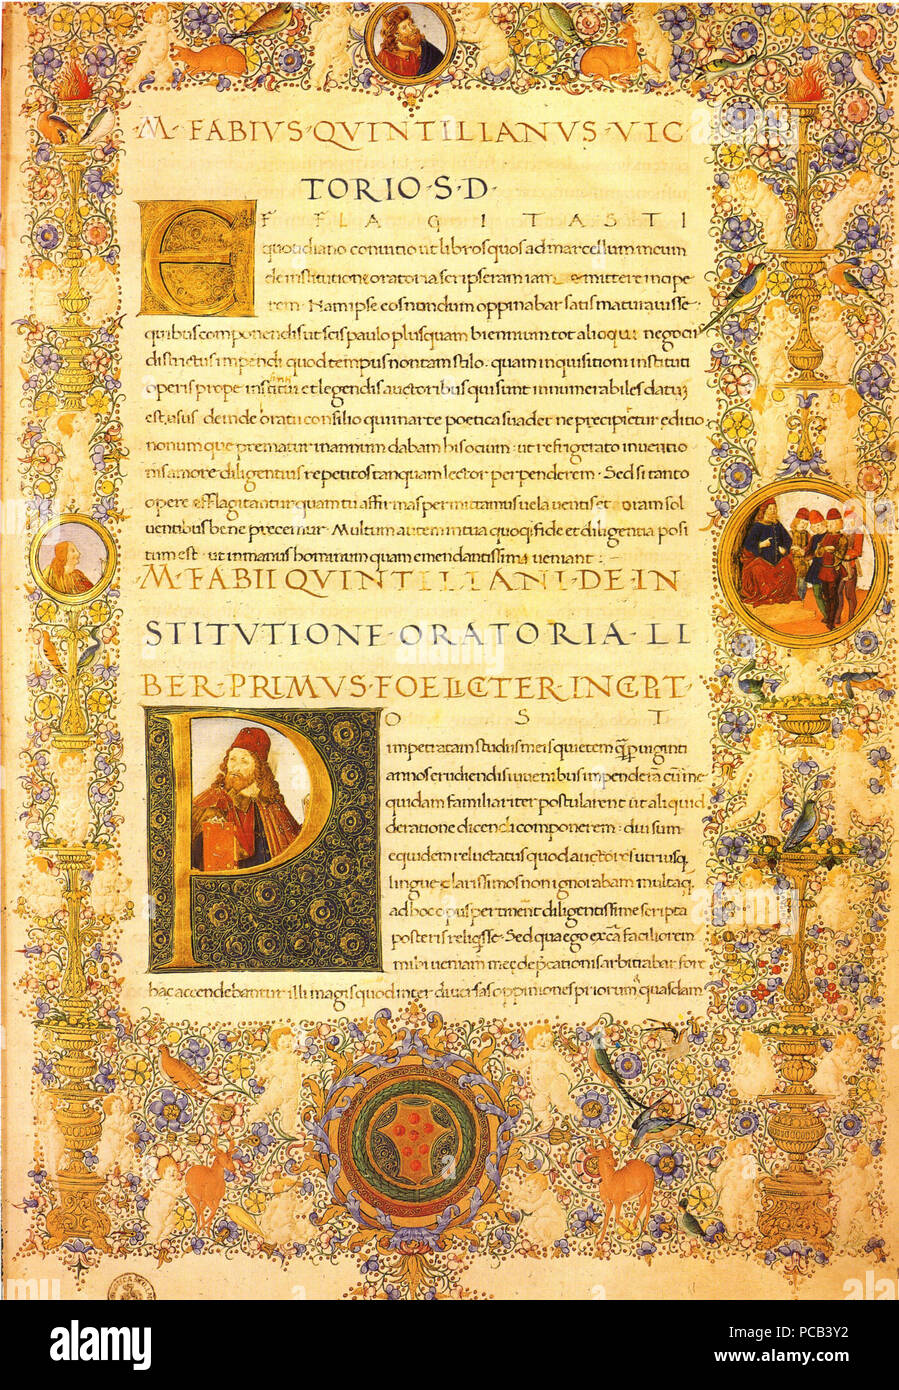 ·M·FABIVS·QVINTILIANVS·VIC
TORIO·S·D·
EFFLAGITASTI
quotidiano conuitio ut libros quos ad marcellum meum
de institutione oratoria scripseram iam emittere incipe
rem· Nam ipse eos nondum oppinabar satis maturauisse·
quibus componendis ut scis paulo plusquam biennium tot alioqui negociis
districtus impendi quod tempus non tam stilo· quam inquisitioni instituti
operis prope et legendis auctoribus qui sunt innumerabiles datum
est· usus deinde consilio qui in arte poetica suadet ne precipitetur editio
nonumque prematur in annum dabam his ocium· ut refrigerato inuentio
nis amore diligentius repetitos tanquam lector perpenderem· Sed si tanto
opere efflagitantur quam tu affirmas permittamus uela uentis et oram sol
uentibus bene precemur· Multum autem in tua quoque fide et diligentia posi
tum est· ut in manus hominum quam emendatissimi ueniant·
·M·FABII QVINTILIANI·DE·IN
STITVTIONE·ORATORIA·LI
BER·PRIMVS·FOELICITER·INCEPIT·
POST
impetratam studiis meis quietem
annos erudiendis iuuenibus impenderam cum me
quidam familiariter postularent ut aliquid
de ratione dicendi componerem: diu sum
equidem reluctatus quod auctores utriusq
lingue clarissimos non ignorabam multaq
ad hoc opus pertinent diligentissime scripta
posteris reliqsse· Sed qua ego facilorem
mihi ueniam arbitrabar fore
hac accendebantur illi magis quod inter diuersas oppiniones priorum quasdam
alamy
Image ID: PCB3Y2
www.alamy.com